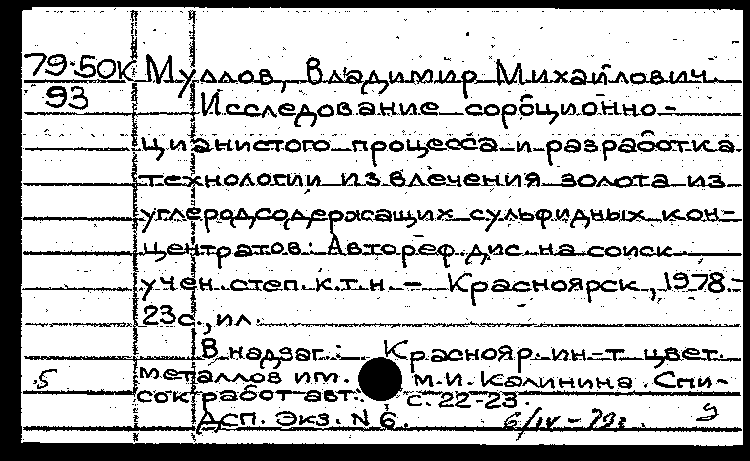 79-50к Муллов, Владимир Михайлович.
93 Исследование сорбционно-
цианистого процесса и разработка
технологии извлечения золота из
углеродсодержащих сульфидных кон-
центратов: Автореф. дис. на соиск.
учен. степ. к.т.н. – Красноярск, 1978.-
23с., ил.
В надзаг.: Краснояр. ин-т цвет.
.5 металлов им. М.И. Калинина. Спи-
сок работ авт.: с. 22-23.
ДСП. Экз. N 6. 6/IV-79г.